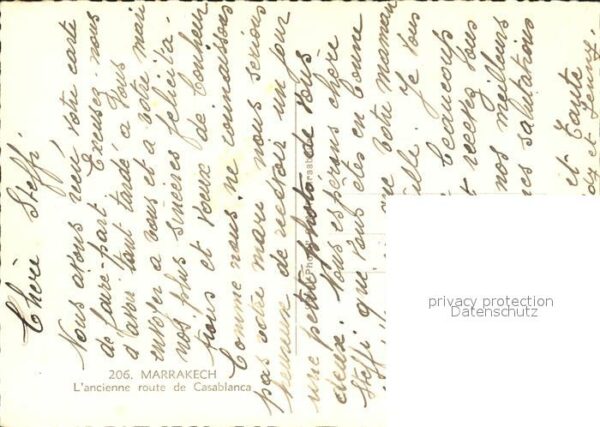 Chère Steffi
Nous avons reçu votre carte
de faire-part Excusez-nous
d'avoir tant tardé à vous
envoyer à vous et à votre mari
nos plus sincères félicita-
tions et vœux de bonheur
Comme nous ne connaissons
pas votre mari nous serions
heureux de recevoir un jour
une petite photo de vous
deux. Nous espérons chère
Steffi que vous êtes en bonne
que votre maman
Je vous
beaucoup
recevez tous
nos meilleurs
salutations
et Tante
et Jenny.
206. MARRAKECH
L'ancienne route de Casablanca
privacy protection
Datenschutz